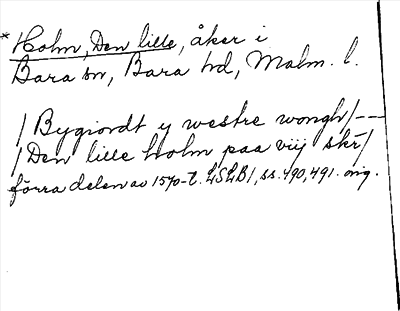 * Holm, Den lille, åker i
Bara sn, Bara hd, Malm. l.
/ Bygiordt y westre wongh / ---
/ Den lille holm paa viij skr /
förra delen av 1570-t. LSLB1, ss. 490, 491. orig.